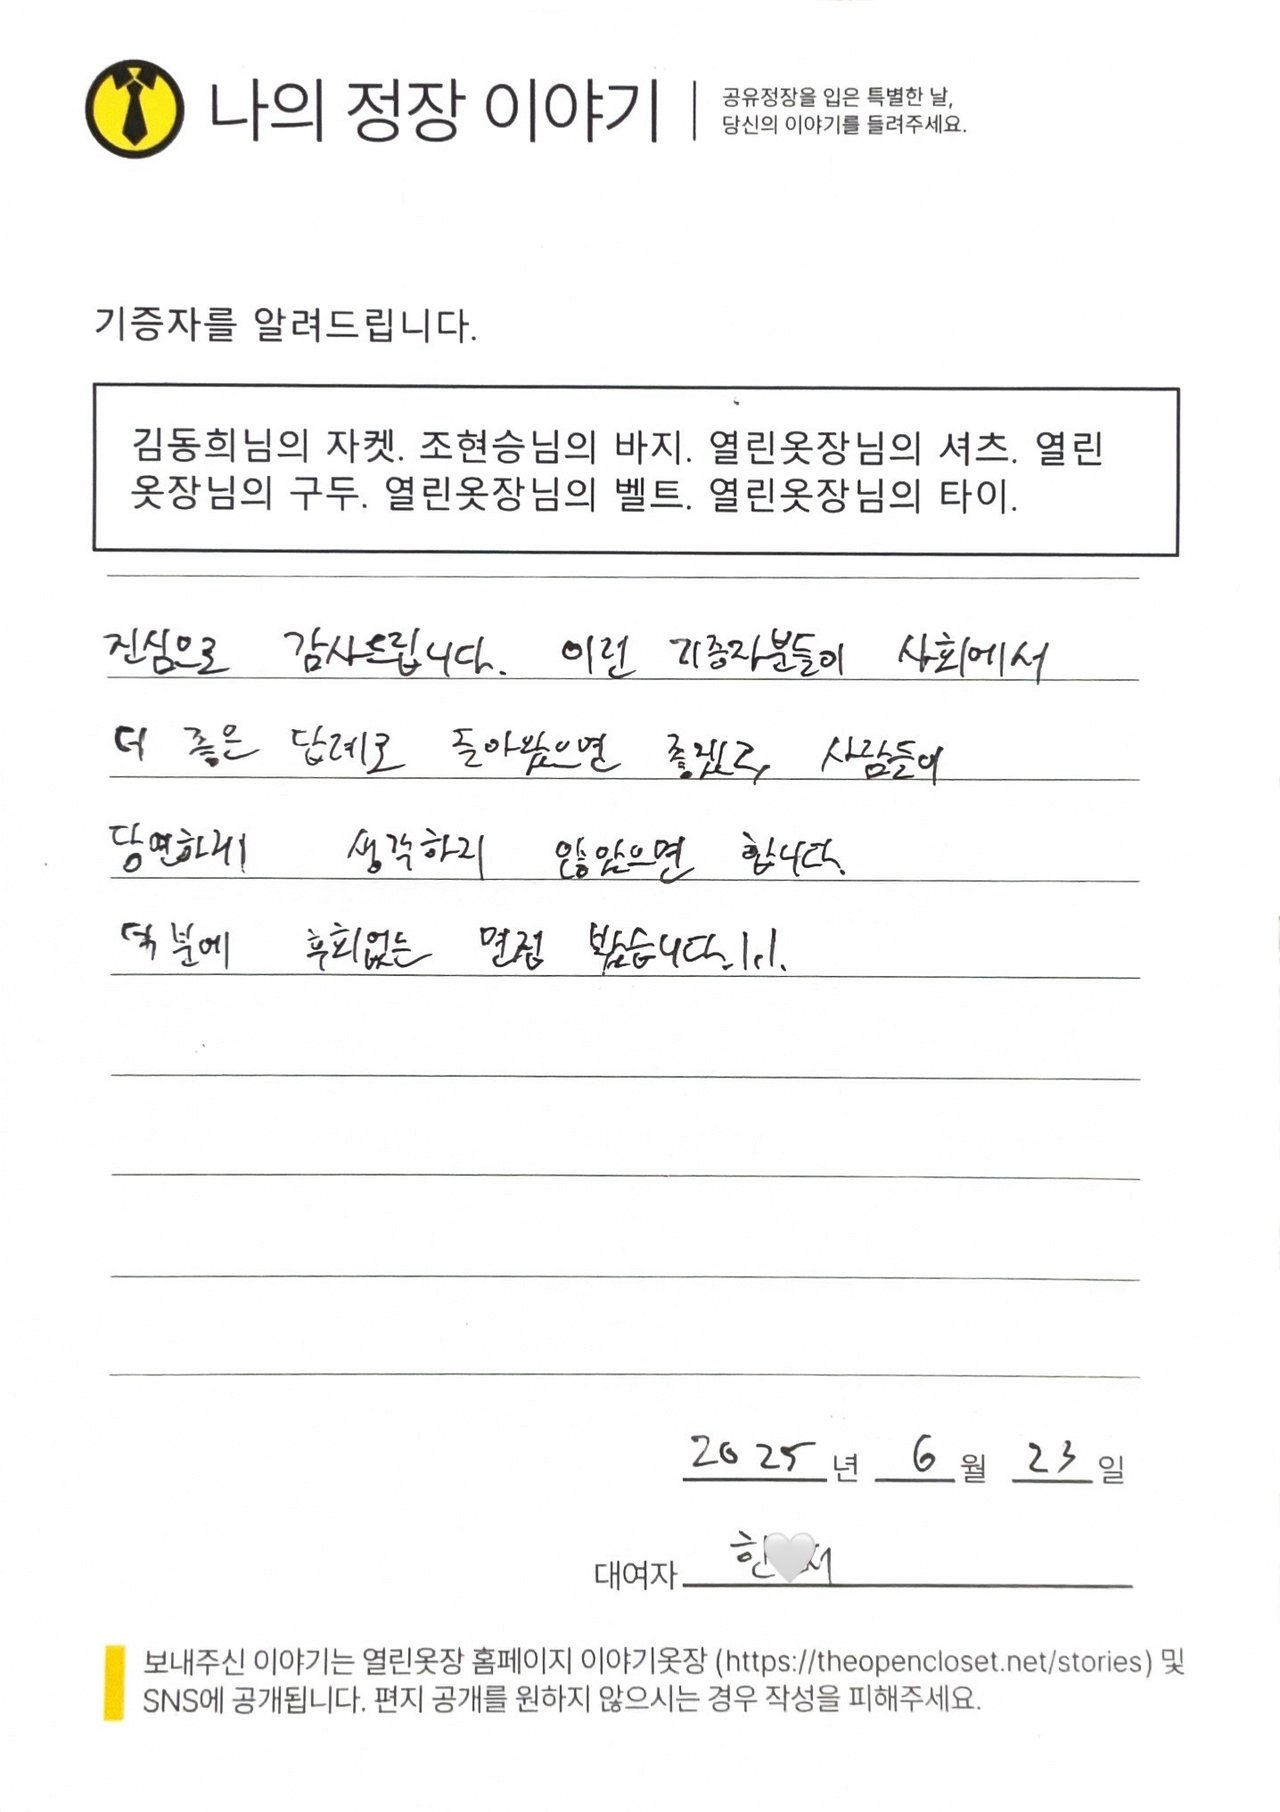 나의 정장 이야기
공유정장을 입은 특별한 날,
당신의 이야기를 들려주세요.
기증자를 알려드립니다.
김동희님의 자켓. 조현승님의 바지. 열린옷장님의 셔츠. 열린
옷장님의 구두. 열린옷장님의 벨트. 열린옷장님의 타이.
진심으로 감사드립니다. 이런 기증자분들이 사회에서
더 좋은 답례로 돌아왔으면 좋겠고, 사람들이
당연하게 생각하지 않았으면 합니다.
덕분에 후회없는 면접 봤습니다.
2025년 6월 23일
대여자 한
보내주신 이야기는 열린옷장 홈페이지 이야기옷장 (https://theopencloset.net/stories) 및
SNS에 공개됩니다. 편지 공개를 원하지 않으시는 경우 작성을 피해주세요.